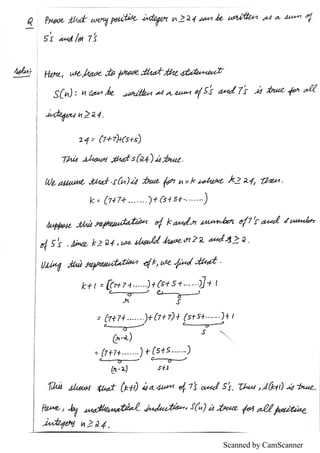 Q Prove that every positive integer n ≥ 24 can be written as a sum of
5's and/or 7's
Soln: Here, we have to prove that the statement
S(n): n can be written as a sum of 5's and 7's is true for all
integers n ≥ 24.
24 = (7+7)+(5+5)
This shows that S(24) is true.
We assume that S(n) is true for n = k where k ≥ 24, Then,
k = (7+7+ .......) + (5+5+ .......)
Suppose this representation of k and r number of 7's and s number
of 5's. Since k ≥ 24, we should have r ≥ 2 and s ≥ 2.
Using this representation of k, we find that -
k+1 = [(7+7+ ......) + (5+5+ ......)] + 1
r s
= (7+7+ .......) + (7+7) + (5+5+ ......) + 1
(r-2) s
= (7+7+ .......) + (5+5 ......)
(r-2) s+3
This shows that (k+1) is a sum of 7's and 5's. Thus, S(k+1) is true.
Hence, by mathematical induction, S(n) is true for all positive
integers n ≥ 24.
Scanned by CamScanner